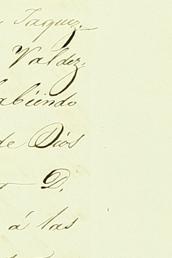 Jaquez
Valdez
habiendo
de Dios
D.
á las